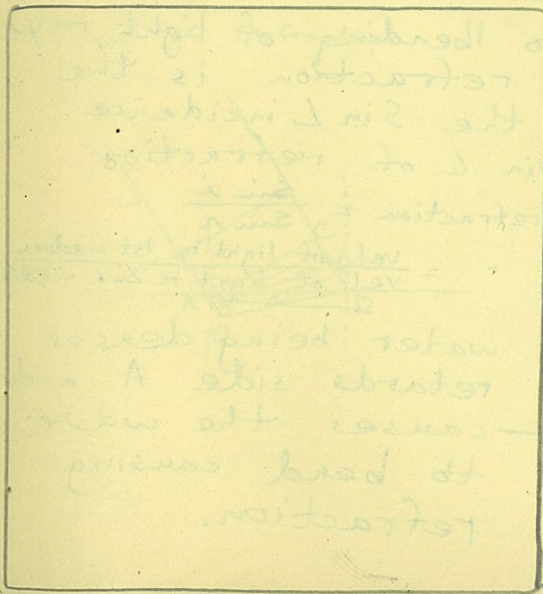 bending of light
refraction is the
the Sin L incidence
L of refraction
refraction = sin i / sin r
= vel of light in 1st medium / vel of light in 2nd
water being denser
retards side A and
causes the wave
to bend causing
refraction.